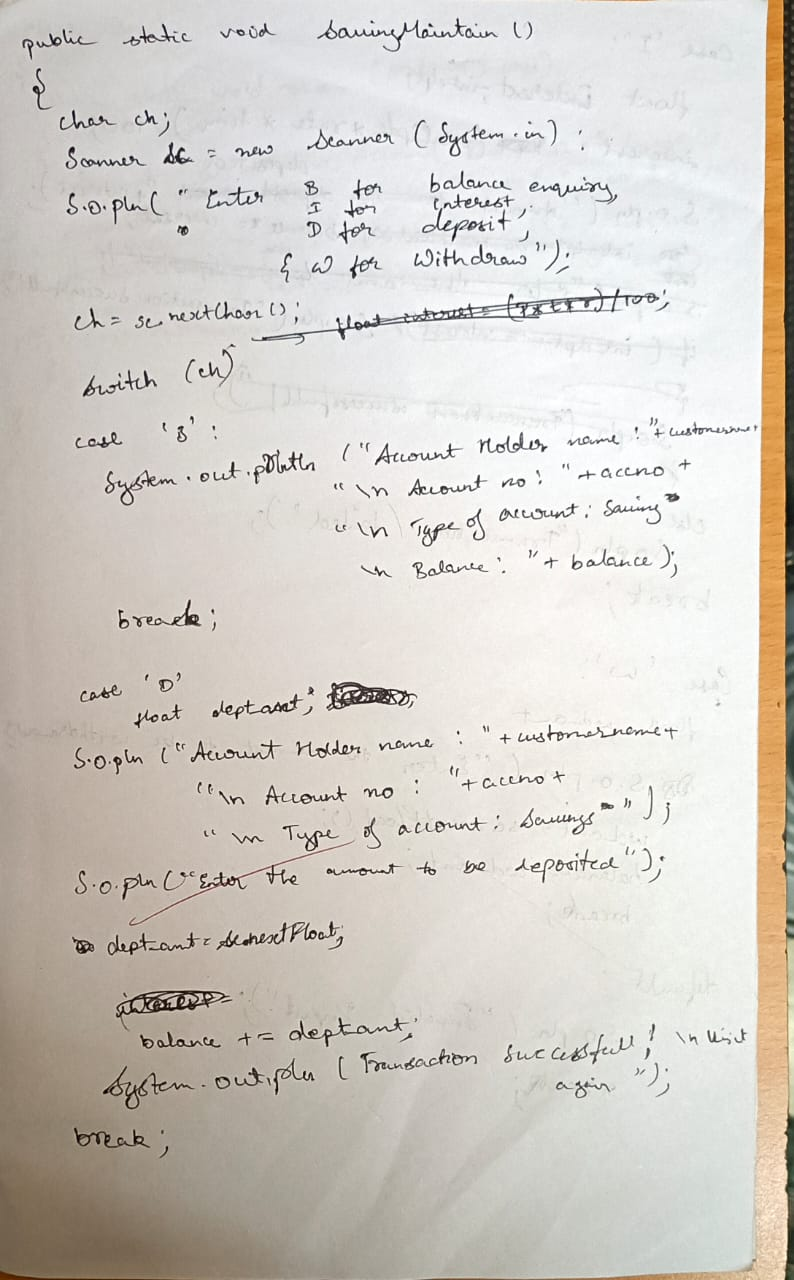 public static void SavingMaintain ()
{
char ch;
Scanner sc = new Scanner (System.in) ;
S.o.pln(" Enter B for balance enquiry,
I for interest,
D for deposit,
& W for Withdraw");
ch = sc.nextChar ();
float interest = /100;
switch (ch)
case 'B' :
System.out.println ("Account Holder name : "+ customername+
"\n Account no : "+accno +
"\n Type of account: Saving
\n Balance : "+ balance);
break;
case 'D'
float dept_amt;
S.o.pln ("Account Holder name : "+customername+
"\n Account no : "+accno +
"\n Type of account: Savings");
S.o.pln ("Enter the amount to be deposited");
dept_amt = sc.nextFloat;
interest =
balance += dept_amt;
System.out.pln (Transaction Successfull! \n Visit
again ");
break ;